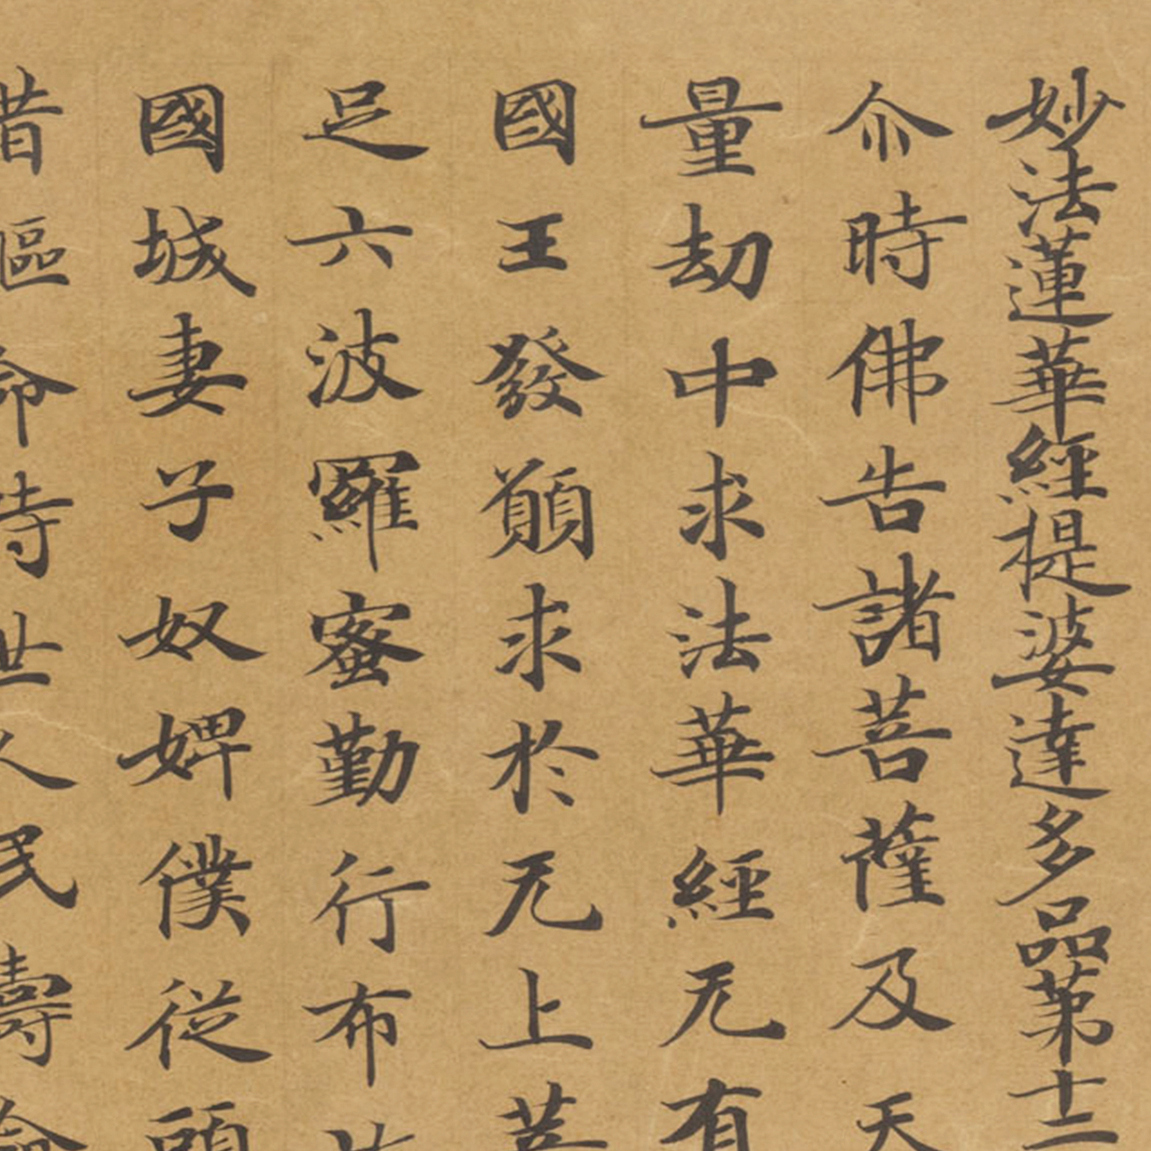 妙法蓮華經提婆達多品第十二
尒時佛告諸菩薩及天
量劫中求法華經无有
國王發願求於无上菩
足六波羅蜜勤行布
國城妻子奴婢僕從頭
惜軀命時世人民壽命